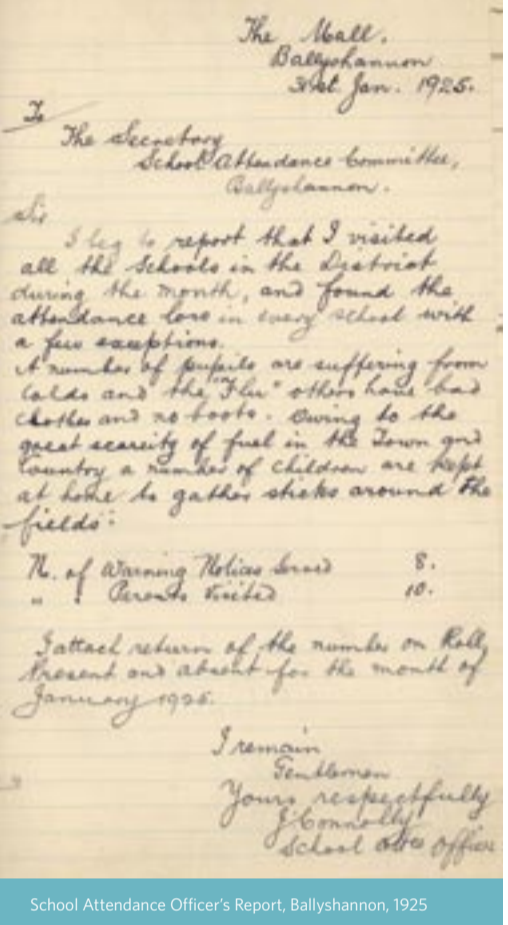 The Mall.
Ballyshannon
31st. Jan. 1925.
To
The Secretary
School Attendance Committee,
Ballyshannon.
Sir
I beg to report that I visited
all the Schools in the District
during the month, and found the
attendance low in every school with
a few exceptions.
A number of pupils are suffering from
Colds and the "Flu" others have bad
clothes and no boots. Owing to the
great scarcity of fuel in the Town and
Country a number of children are kept
at home to gather sticks around the
fields.
N. of Warning Notices Served 8.
" " Parents Visited 10.
I attach return of the number on Roll,
Present and absent for the month of
January 1925.
I remain
Gentlemen
Yours respectfully
J Connolly
School Officer
School Attendance Officer's Report, Ballyshannon, 1925